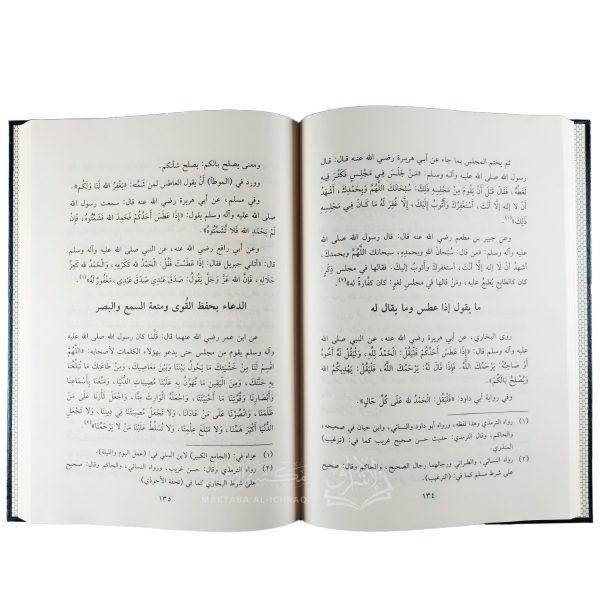 ثم يختم المجلس بما جاء عن أبي هريرة رضي الله عنه قال: قال
رسول الله صلى الله عليه وآله وسلم: «مَنْ جَلَسَ فِي مَجْلِسٍ فَكَثُرَ فِيهِ
لَغَطُهُ، فَقَالَ قَبْلَ أَنْ يَقُومَ مِنْ مَجْلِسِهِ ذَلِكَ: سُبْحَانَكَ اللَّهُمَّ وَبِحَمْدِكَ، أَشْهَدُ
أَنْ لَا إِلَهَ إِلَّا أَنْتَ، أَسْتَغْفِرُكَ وَأَتُوبُ إِلَيْكَ، إِلَّا غُفِرَ لَهُ مَا كَانَ فِي مَجْلِسِهِ
ذَلِكَ»(١).
وعن جبير بن مطعم رضي الله عنه قال: قال رسول الله صلى الله
عليه وآله وسلم: «مَن قال: سُبْحَانَ اللهِ وبِحمدِهِ، سبحانك اللَّهُمَّ وبحمدك،
أشهدُ أنْ لا إلَهَ إلَّا أنتَ، أستغفركَ وأتوبُ إليك. فقالها في مجلسِ ذِكرٍ
كان كالطابَعِ يُطبع عليه، ومَن قالها في مجلس لغوٍ: كان كفَّارةً له»(٢).
ما يقول إذا عطس وما يقال له
روى البخاري، عن أبي هريرة رضي الله عنه، عن النبي صلى الله
عليه وآله وسلم قال: «إِذَا عَطَسَ أَحَدُكُمْ فَلْيَقُلْ: الْحَمْدُ لِلَّهِ، وَلْيَقُلْ لَهُ أَخُوهُ
أَوْ صَاحِبُهُ: يَرْحَمُكَ اللَّهُ. فَإِذَا قَالَ لَهُ: يَرْحَمُكَ اللَّهُ، فَلْيَقُلْ: يَهْدِيكُمُ اللَّهُ
وَيُصْلِحُ بَالَكُمْ».
وفي رواية أبي داود: «فَلْيَقُلْ: الْحَمْدُ للهِ عَلَى كُلِّ حَالٍ».
(١) رواه الترمذي وهذا لفظه، ورواه أبو داود والنسائي، وابن حبان في صحيحه،
والحاكم، وقال الترمذي: حديث حسن صحيح غريب كما في: (ترغيب)
(٢) رواه النسائي، والطبراني ورجالهما رجال الصحيح، والحاكم وقال: صحيح
على شرط مسلم كما في: (الترغيب).
١٣٤
ومعنى يصلح بالكم: يصلح شأنكم.
وورد في (الموطأ) أَنْ يقول العاطس لمن شمَّته: «يَغْفِرُ اللهُ لَنَا وَلَكُم».
وفي مسلم، عن أبي هريرة رضي الله عنه قال: سمعت رسول الله
صلى الله عليه وآله وسلم يقول: «إِذَا عَطَسَ أَحَدُكُمْ فَحَمِدَ اللهَ فَشَمِّتُوهُ، فَإِنْ
لَمْ يَحْمَدِ اللهَ فَلَا تُشَمِّتُوهُ».
وعن أبي رافع رضي الله عنه، عن النبي صلى الله عليه وآله وسلم
قال: «أتاني جبريل فقال: إِذَا عَطَسْتَ فَقُلْ: الْحَمْدُ للهِ كَكَرَمِهِ، وَالْحَمْدُ للهِ كَعِزِّ
جَلَالِهِ، فَإِنَّ اللهَ عَزَّ وَجَلَّ يَقُولُ: صَدَقَ عَبْدِي، صَدَقَ عَبْدِي، مَغْفُورٌ لَهُ»(١).
الدعاء بحفظ القُوى ومتعة السمع والبصر
عن ابن عمر رضي الله عنهما قال: قَلَّمَا كان رسول الله صلى الله
عليه وآله وسلم يقوم من مجلس حتى يدعو بهؤلاء الكلمات لأصحابه: «اللَّهُمَّ
اقْسِمْ لَنَا مِنْ خَشْيَتِكَ مَا يَحُولُ بَيْنَنَا وَبَيْنَ مَعَاصِيكَ، وَمِنْ طَاعَتِكَ مَا تُبَلِّغُنَا
بِهِ جَنَّتَكَ، وَمِنَ الْيَقِينِ مَا تُهَوِّنُ بِهِ عَلَيْنَا مُصِيبَاتِ الدُّنْيَا، وَمَتِّعْنَا بِأَسْمَاعِنَا
وَأَبْصَارِنَا وَقُوَّتِنَا مَا أَحْيَيْتَنَا، وَاجْعَلْهُ الْوَارِثَ مِنَّا، وَاجْعَلْ ثَأْرَنَا عَلَى مَنْ
ظَلَمَنَا، وَانْصُرْنَا عَلَى مَنْ عَادَانَا، وَلَا تَجْعَلْ مُصِيبَتَنَا فِي دِينِنَا، وَلَا تَجْعَلِ
الدُّنْيَا أَكْبَرَ هَمِّنَا، وَلَا مَبْلَغَ عِلْمِنَا، وَلَا تُسَلِّطْ عَلَيْنَا مَنْ لَا يَرْحَمُنَا»(٢).
(١) عزاه في: (الجامع الكبير) لابن السني في (عمل اليوم والليلة).
(٢) رواه الترمذي وقال: حسن غريب، ورواه النسائي، والحاكم وقال: صحيح
على شرط البخاري كما في (تحفة الأحوذي)
١٣٥
MAKTABA AL-ICHRAQ